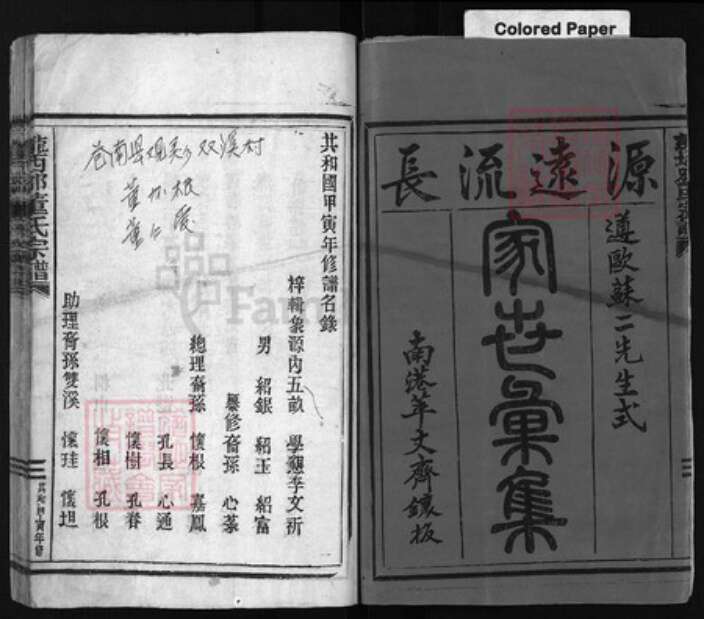 Colored Paper
源遠流長
遵歐蘇二先生式
家世彙集
南港萃文齊鐫板
共和國甲寅年修譜名錄
梓輯象源內五畝 學懋李文祈
男 紹銀 紹玉 紹富
纂修裔孫 心菉
總理裔孫 懷根 嘉鳳
孔長 心通
懷樹 孔眷
懷相 孔根
助理裔孫雙溪 懷珪 懷坦
苍南县观美乡双溪村
董加根
董仁霞
隴西郡董氏宗譜
共和甲寅年修